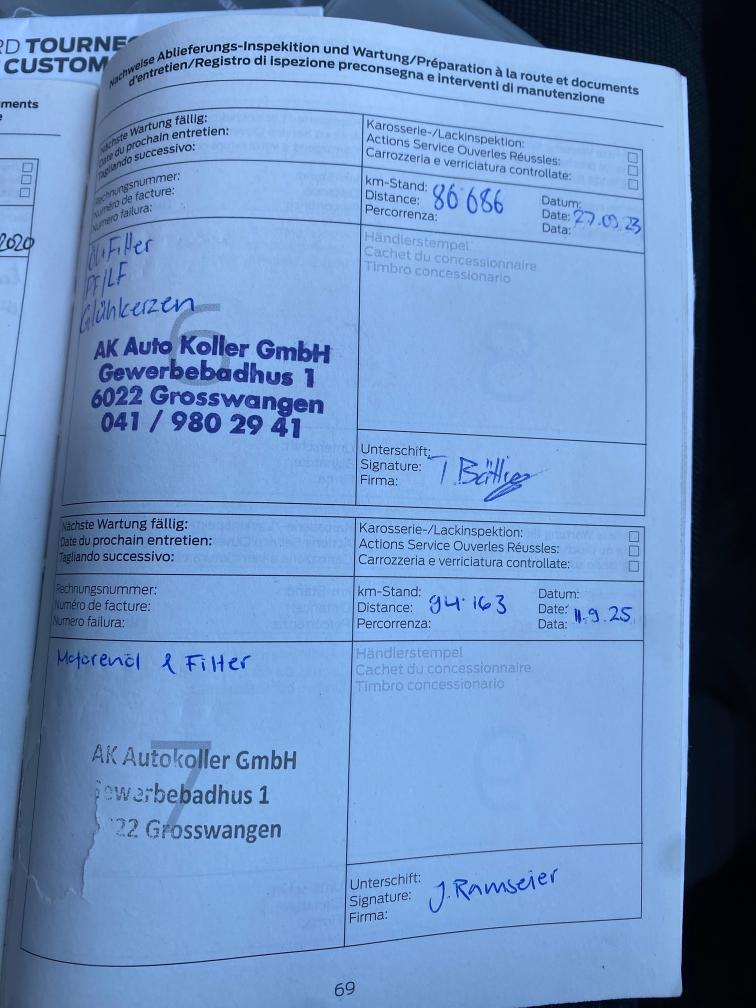 RD TOURNE
CUSTOM
ments
2020
Nachweise Ablieferungs-Inspektion und Wartung/Préparation à la route et documents
d'entretien/Registro di ispezione preconsegna e interventi di manutenzione
Nächste Wartung fällig:
Date du prochain entretien:
Tagliando successivo:
Karosserie-/Lackinspektion:
Actions Service Ouverles Réussles:
Carrozzeria e verriciatura controllate:
Rechnungsnummer:
Numéro de facture:
Numero failura:
km-Stand:
Distance: 86·686
Percorrenza:
Datum:
Date: 27.09.23
Data:
Öl+Filter
PF/LF
Glühkerzen
6
AK Auto Koller GmbH
Gewerbebadhus 1
6022 Grosswangen
041 / 980 29 41
Händlerstempel
Cachet du concessionnaire
Timbro concessionario
Unterschift:
Signature: T. Bättig
Firma:
Nächste Wartung fällig:
Date du prochain entretien:
Tagliando successivo:
Karosserie-/Lackinspektion:
Actions Service Ouverles Réussles:
Carrozzeria e verriciatura controllate:
Rechnungsnummer:
Numéro de facture:
Numero failura:
km-Stand:
Distance: 94·163
Percorrenza:
Datum:
Date: 11.9.25
Data:
Motorenöl & Filter
7
AK Autokoller GmbH
Gewerbebadhus 1
22 Grosswangen
Händlerstempel
Cachet du concessionnaire
Timbro concessionario
Unterschift:
Signature: J. Ramseier
Firma:
69